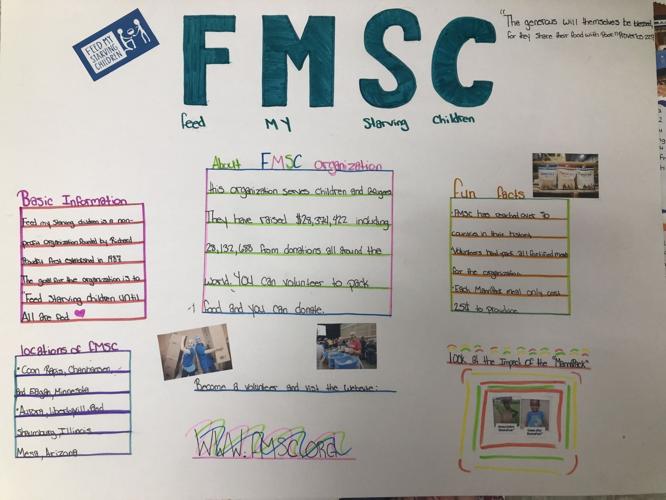 FEED MY
STARVING
CHILDREN
FMSC
Feed MY Starving Children
"The generous will themselves be blessed,
for they share their food with poor." Proverbs 22:9
Basic Information
Feed my starving children is a non-
profit organization by Richard
first established in 1987
The goal for the organization is to
"Feed Starving children until
All are fed
About FMSC organization
this organization serves children and Refugees
They have raised $28,374,422 including
28,132,688 from donations all around the
world. YOU can volunteer to pack
food and you can donate.
Fun Facts
FMSC has reached over 70
countries in their history
Volunteers hand-pack all fortified meals
for the organization.
Each MannaPack meal only cost
25¢ to produce
locations of FMSC
• Coon Rapids, Chanhassen,
and Eagan, Minnesota
• Aurora, Libertyville, And
Schaumburg, Illinois
Mesa, Arizona
Become a volunteer and visit the website:
WWW.FMSC.ORG
look at the Impact of the "MannaPack"